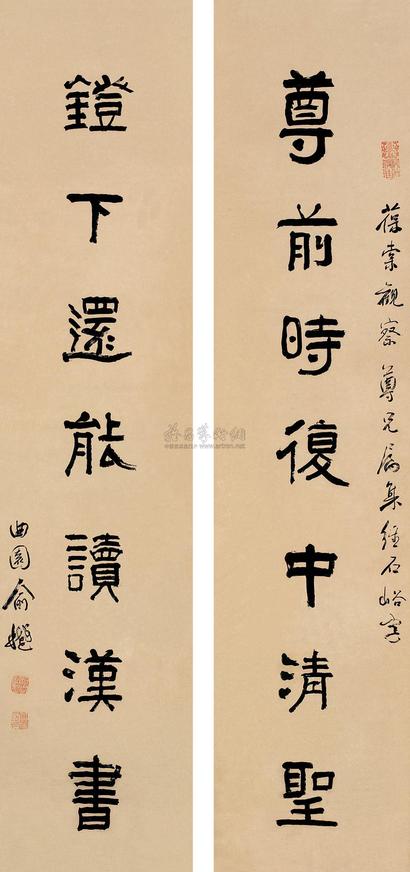 尊前時復中清聖
葆棠觀察尊兄屬集經石峪字
鐙下還能讀漢書
曲園俞樾